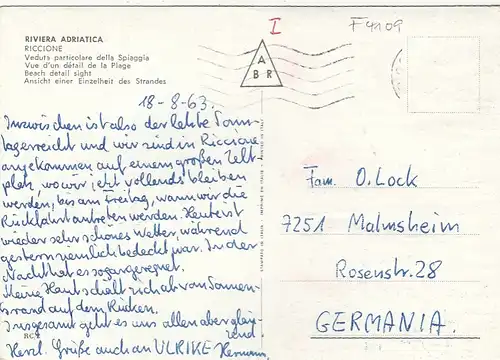 I
F 4109
RIVIERA ADRIATICA
RICCIONE
Veduta particolare della Spiaggia
Vue d'un détail de la Plage
Beach detail sight
Ansicht einer Einzelheit des Strandes
A
B R
18-8-63.
Inzwischen ist also der letzte Sonn-
tag erreicht und wir sind in Riccione
angekommen auf einem großen Zelt-
platz, wo wir jetzt vollends bleiben
werden, bis am Freitag, wann wir die
Rückfahrt antreten werden. Heute ist
wieder sehr schönes Wetter, während
gestern ziemlich bedeckt war. In der
Nacht hat es sogar geregnet.
Meine Haut schält sich ab von Sonnen-
brand auf dem Rücken.
Insgesamt geht es uns allen aber glän-
zend
Herzl. Grüße auch an ULRIKE Hermann
Fam. O. Lock
7251 Malmsheim
Rosenstr. 28
GERMANIA.